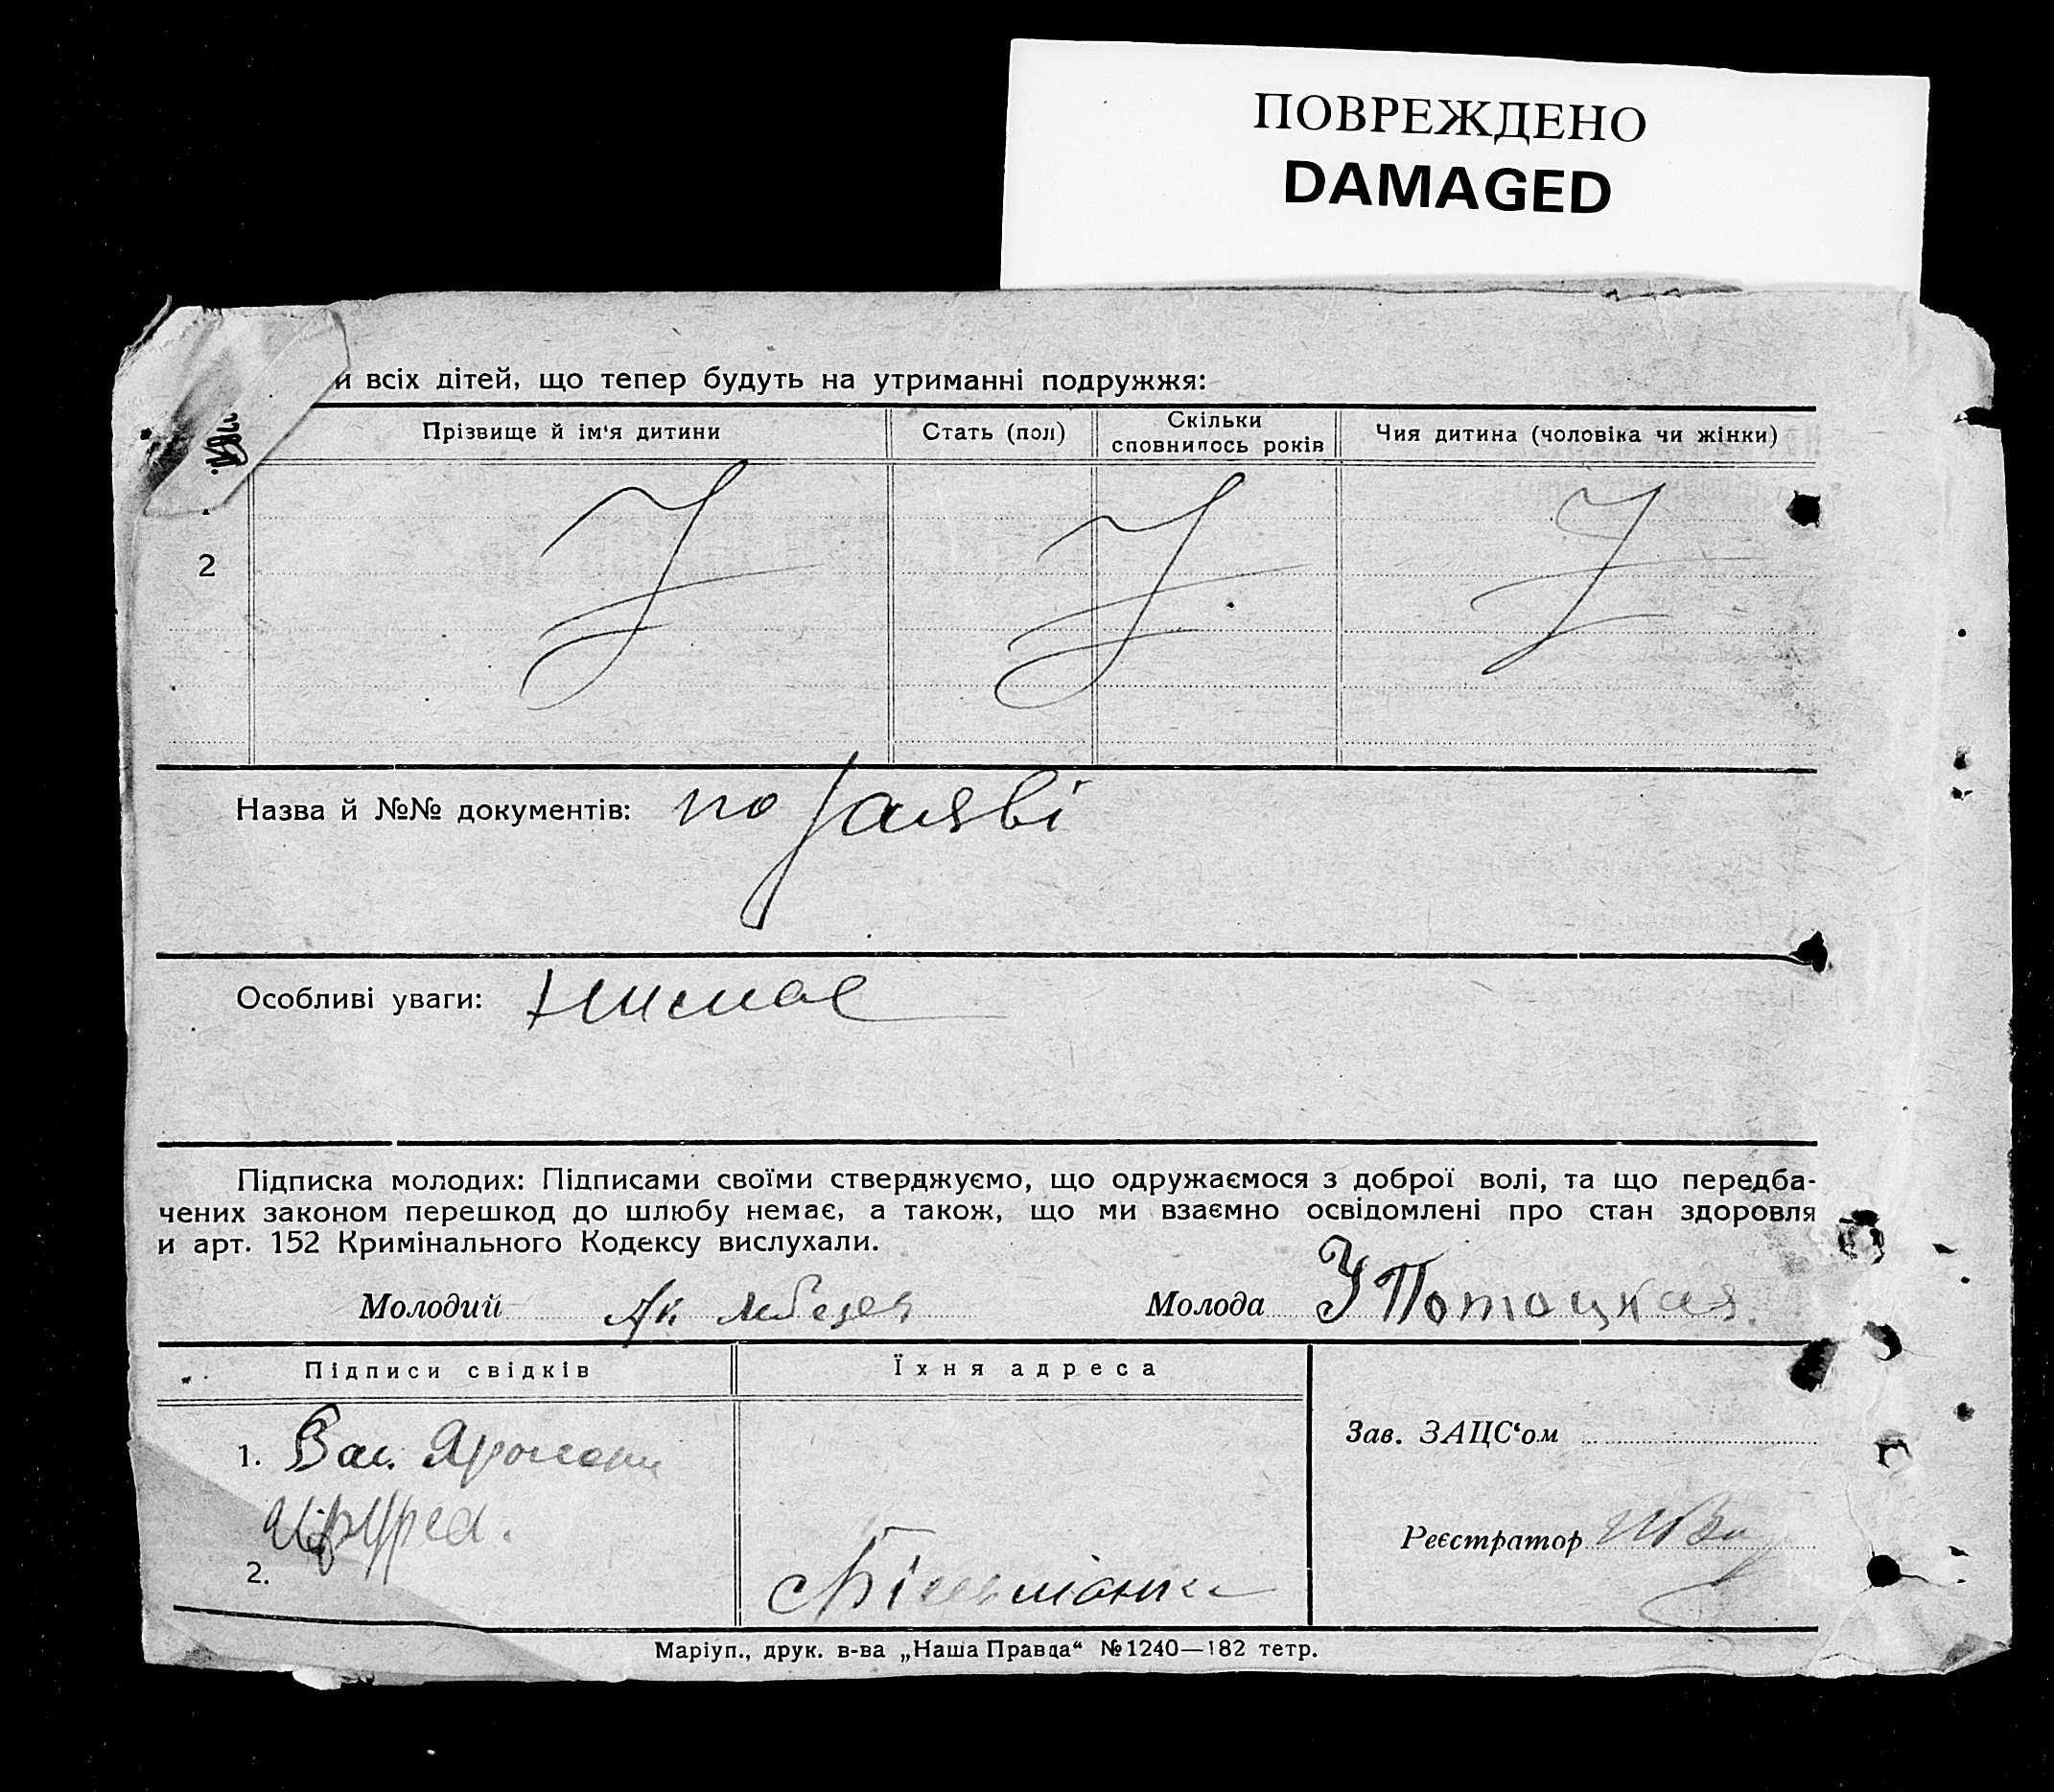 ПОВРЕЖДЕНО
DAMAGED
и всіх дітей, що тепер будуть на утриманні подружжя:
Прізвище й ім‘я дитини Стать (пол) Скільки сповнилось років Чия дитина (чоловіка чи жінки)
2
Назва й №№ документів: по заяві
Особливі уваги: немає
Підписка молодих: Підписами своїми стверджуємо, що одружаємося з доброї волі, та що передба-
чених законом перешкод до шлюбу немає, а також, що ми взаємно освідомлені про стан здоровля
и арт. 152 Кримінального Кодексу вислухали.
Молодий Молода У Потоцкая
Підписи свідків Їхня адреса
1. Вас.
Зав. ЗАЦС‘ом
Реєстратор
2.
Маріуп., друк. в-ва „Наша Правда“ №1240—182 тетр.